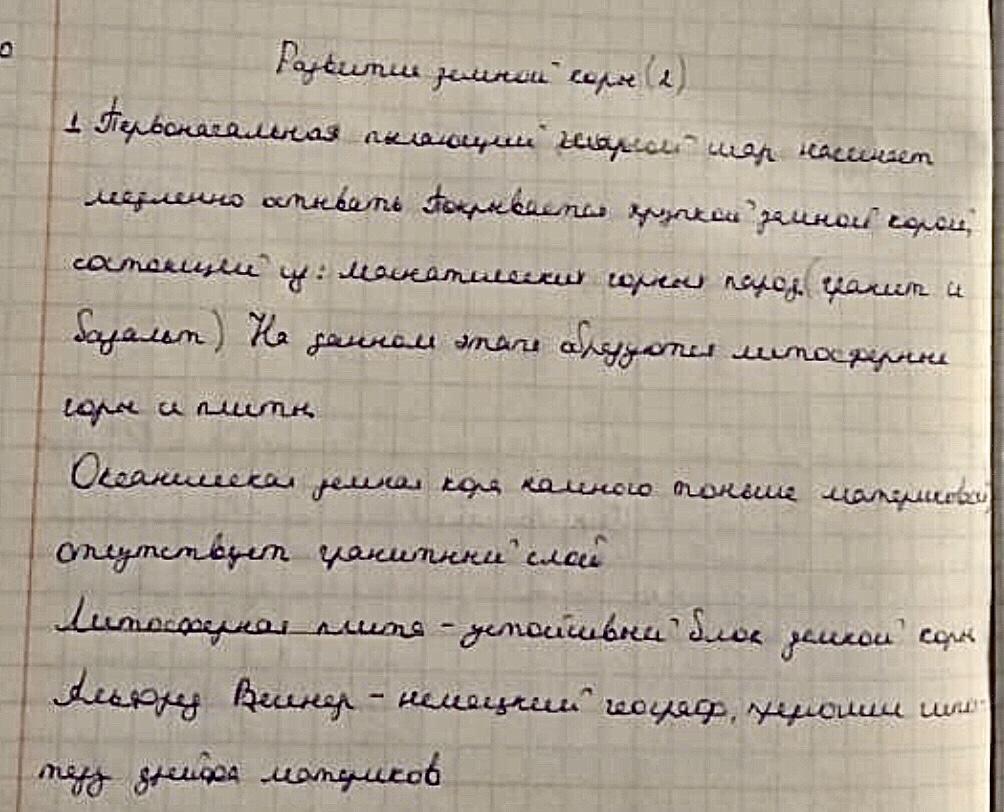 Развитие земной коры (2)
1 Первоначальная пылающий шар начинает
медленно остывать покрывается хрупкой земной корой,
состоящей из: магматических горных пород (гранит и
базальт) На данном этапе образуются литосферные
горы и плиты
Океаническая земная кора намного тоньше материковой,
отсутствует гранитный слой
Литосферная плита - устойчивый блок земной коры
Альфред Вегенер - немецкий географ,
тезу дрейфа материков